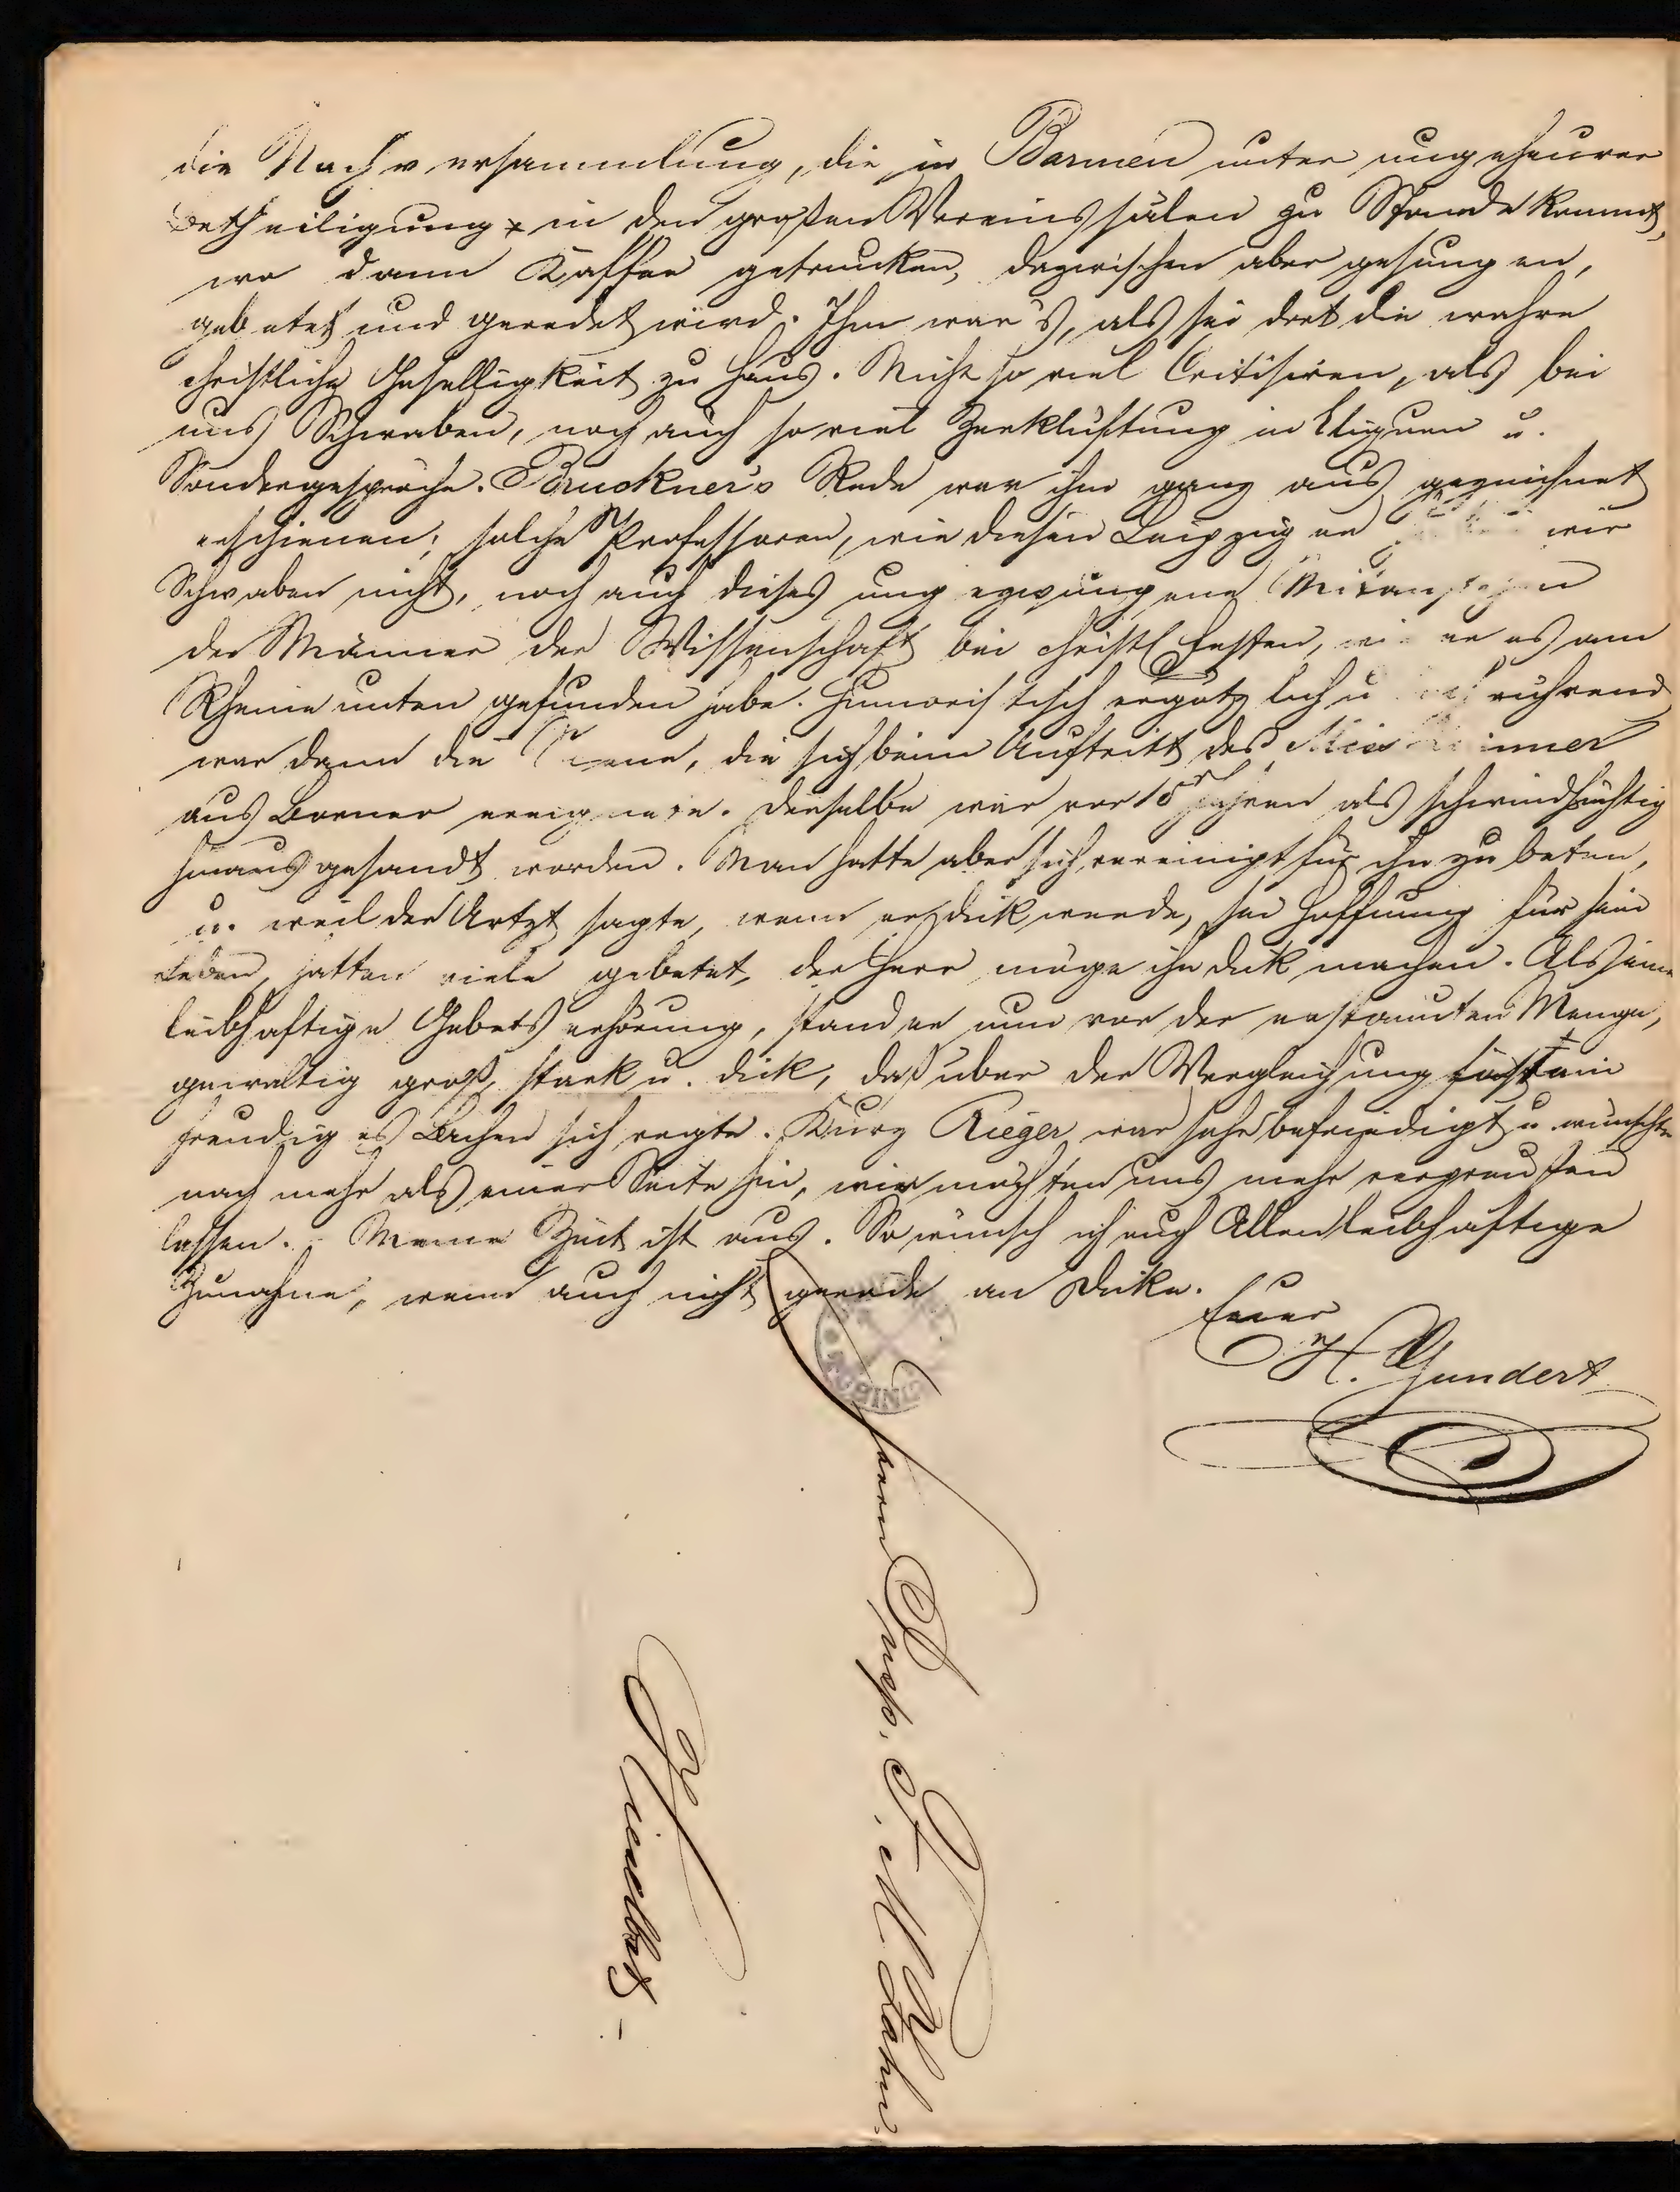 die Nachversammlung, die in Barmen unter ungeheurer
Betheiligung in den großen Vereinssälen zu Stande kommt,
wo dann Kaffee getrunken, dazwischen aber gesungen,
gebetet und geredet wird. Ihm war's, als sei dort die wahre
christliche Geselligkeit zu Haus. Nicht so viel Critisiren, als bei
uns Schwaben, noch auch so viel Zerklüftung in Cliquen u.
Sondergespräche. Bruckner's Rede war ihm ganz ausgezeichnet
erschienen; solche Professoren, wie diesen Leipziger wir
Schwaben nicht, noch auch dieses ungezwungene
der Männer der Wissenschaft bei christl Festen, wie er es am
Rheine unten gefunden habe. Humoristisch ergötzlich u rührend
war dann die Scene, die sich beim Auftritt des Miss
aus Borneo ereignete. Derselbe war vor Jahren als schwindsüchtig
hinausgesandt worden. Man hatte aber sich vereinigt für ihn zu beten,
u. weil der Artzt sagte, wenn er dick werde, sei Hoffnung für sein
Leben, hatten viele gebetet, der Herr möge ihn dick machen. Als eine
leibhaftige Gebetserhörung, stand er nun vor der erstaunten Menge,
gewaltig groß, stark u. dick, daß über der Vergleichung fast ein
freudiges Lachen sich regte. Kurz Rieger war sehr befriedigt u wünschte
nach mehr als einer Seite hin, wir möchten uns mehr verpreußen
lassen. - Meine Zeit ist aus. So wünsch ich euch Allen leibhaftige
Zunahme, wenn auch nicht gerade an Dicke.
Euer
H. Gundert
Herrn